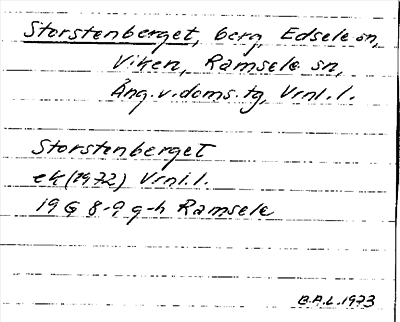 Storstenberget, berg, Edsele sn,
Viken, Ramsele sn,
Ång.v.doms.tg, Vrnl.l.
Storstenberget
ek (1972) Vrnl.l.
19 G 8-9 g-h Ramsele
B.A.L. 1973